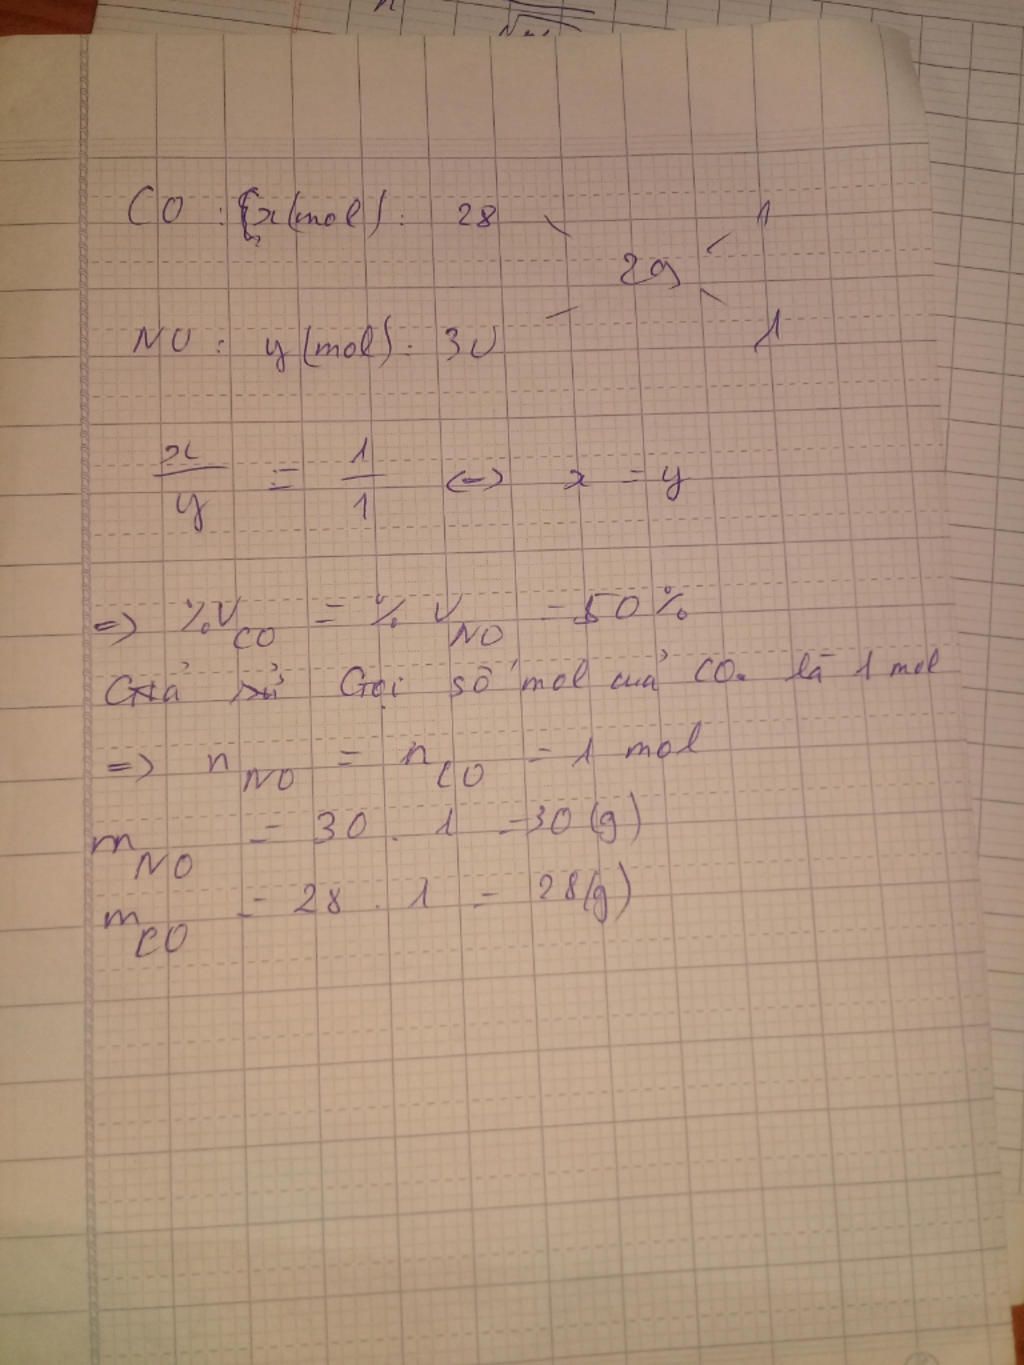 CO : x(mol) : 28 1
29
NO : y(mol) : 30 1
x/y = 1/1 <=> x = y
=> %V_CO = % V_NO = 50%
Giả sử Gọi số mol của CO. là 1 mol
=> n_NO = n_CO = 1 mol
m_NO = 30 . 1 = 30 (g)
m_CO = 28 . 1 = 28 (g)